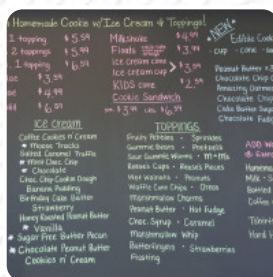 Homemade Cookie w/ Ice Cream & Toppings!
1 topping $5.59
2 toppings $5.99
toppings $6.59
$3.59
$4.99
$6.59
Milkshake $4.99
Floats $3.99
ice cream cone
ice cream cup $3.59
KIDS cone $2.59
Cookie Sandwich
NEW
Edible Cook
- cup - cone -
Peanut Butter
Chocolate Chip
Amazing Oatmea
Chocolate Chip
Cake Batter Sugar
Chocolate Fudg
Ice Cream
Coffee Cookies n' Cream
Moose Tracks
Salted Caramel Truffle
Mint Choc. Chip
Chocolate
Choc. Chip Cookie Dough
Banana Pudding
Birthday Cake Batter
Strawberry
Honey Roasted Peanut Butter
Vanilla
Sugar Free Butter Pecan
Chocolate Peanut Butter
Cookies n' Cream
TOPPINGS
Fruity Pebbles - Sprinkles
Gummie Bears - Pretzels
Sour Gummie Worms - M&Ms
Reese's Cups - Reese's Pieces
Wet Walnuts - Peanuts
Waffle Cone Chips - Oreos
Marshmallow Charms
Peanut Butter - Hot Fudge
Choc. Syrup - Caramel
Marshmallow Whip
Butterfingers - Strawberries
Frosting
ADD
Homema
Milk - $
Bottled
Coffee
Tshirt
Hard